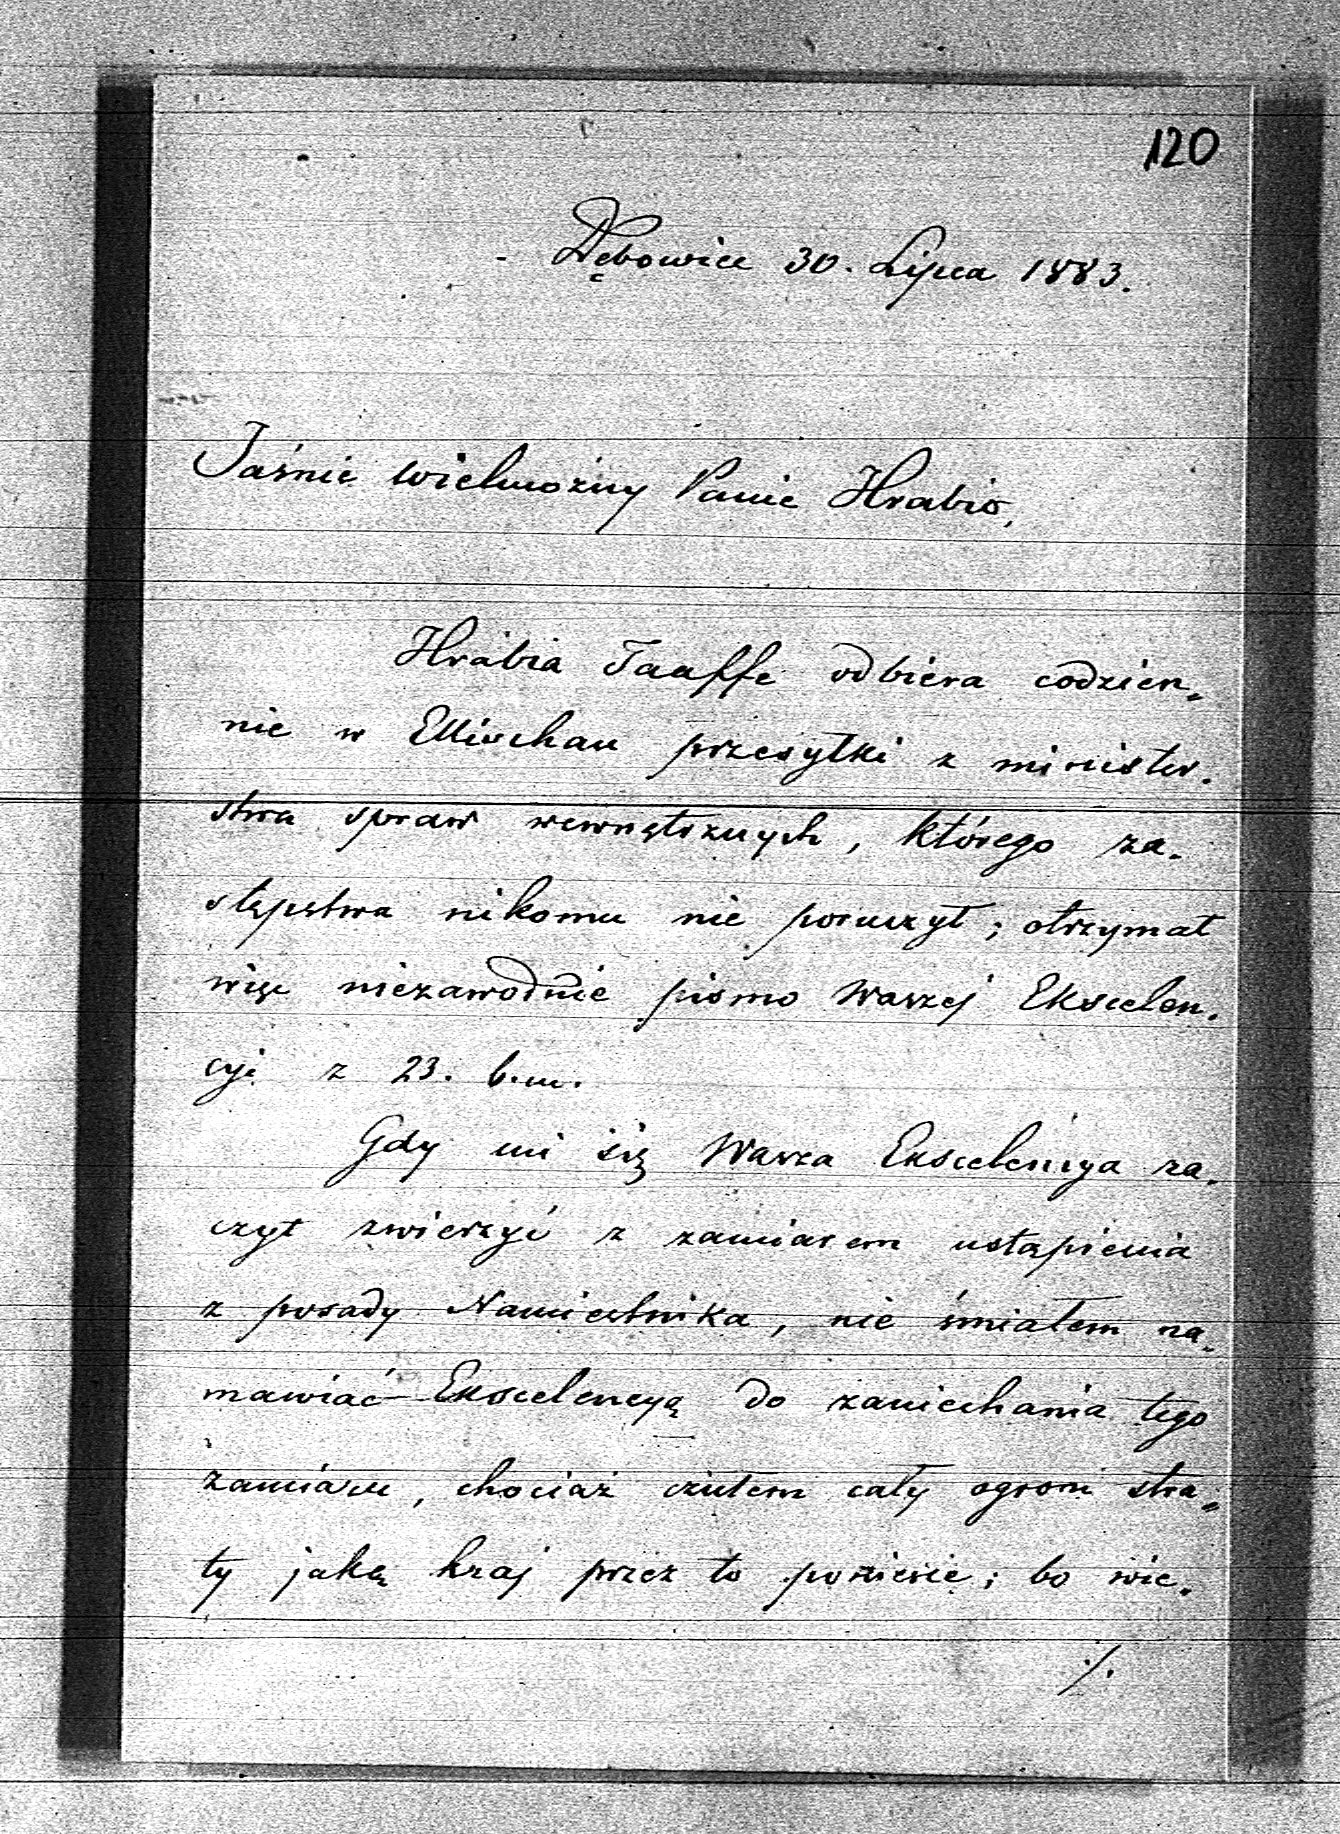 120
Dębowiec 30. Lipca 1883.
Jaśnie Wielmożny Panie Hrabio,
Hrabia Taaffe odbiera codzien-
nie w Ellischau przesyłki z minister-
stwa spraw wewnętrznych, którego za-
stępstwa nikomu nie poruczył; otrzymał
więc niezawodnie pismo Waszej Ekscelen-
cyi z 23. b.m.
Gdy mi się Wasza Ekscelencya ra-
czył zwierzyć z zamiarem ustąpienia
z posady Namiestnika, nie śmiałem na-
mawiać Ekscelencyą do zaniechania tego
zamiaru, chociaż czułem cały ogrom stra-
ty jaką kraj przez to poniesie; bo wie-
./.